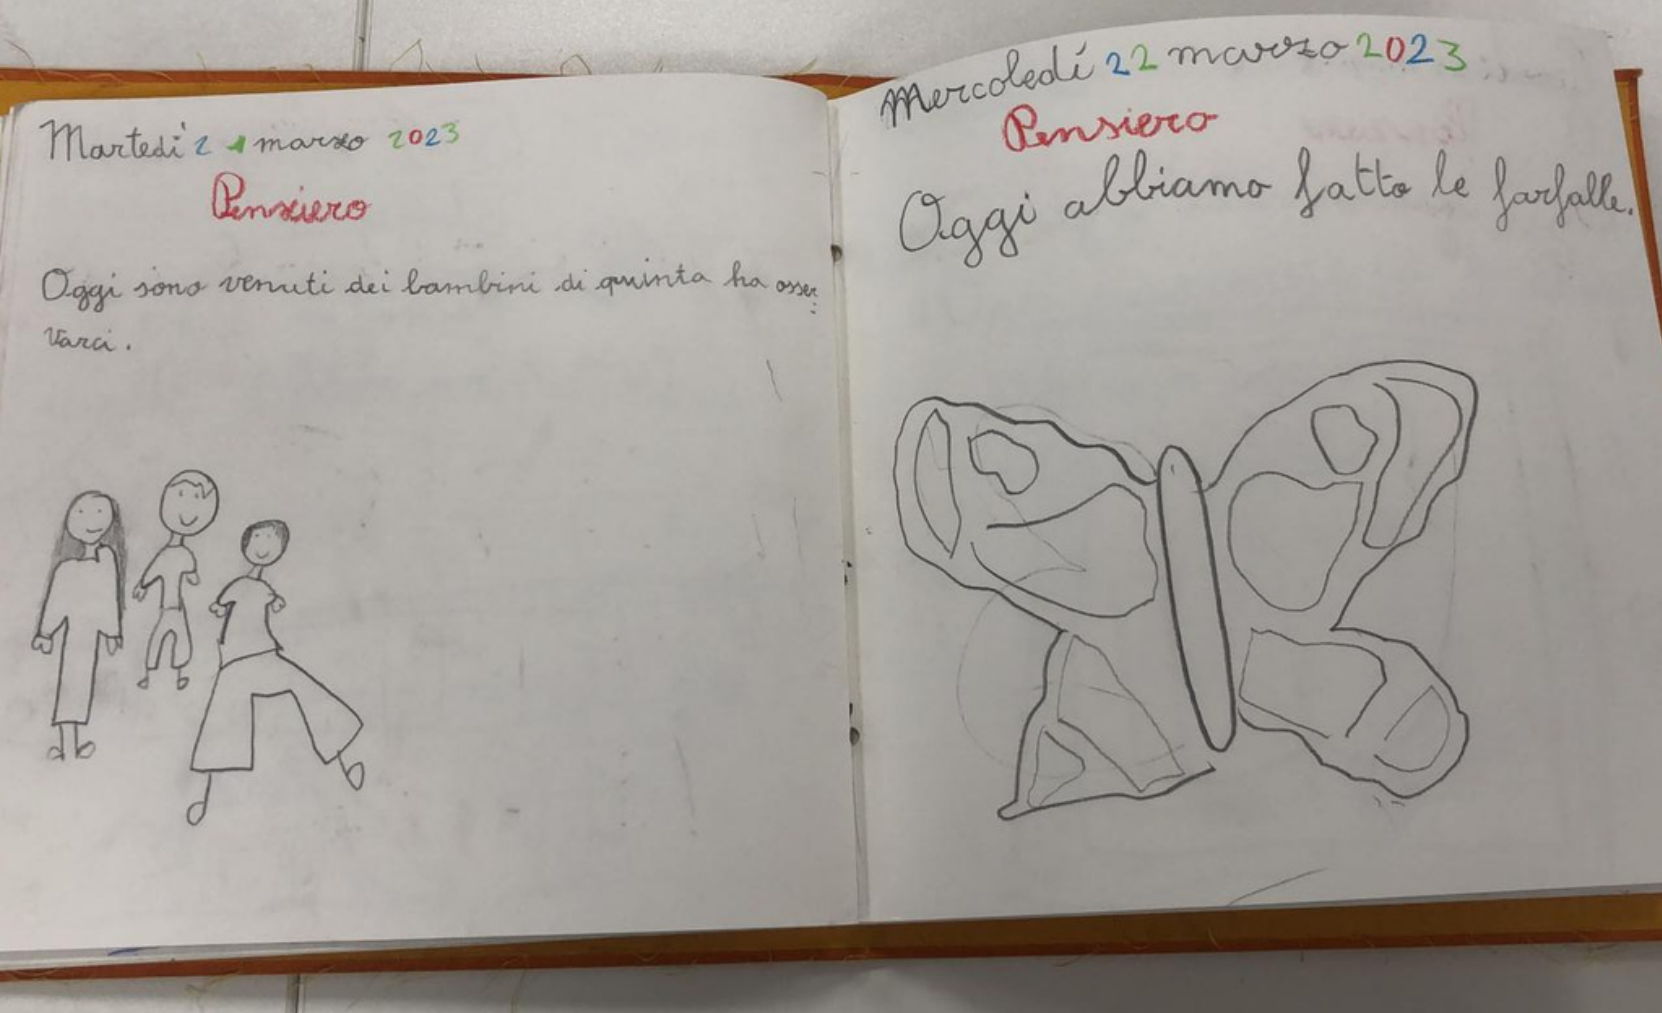 Martedì 21 marzo 2023
Pensiero
Oggi sono venuti dei bambini di quinta ha osser
varci.
Mercoledí 22 marzo 2023
Pensiero
Oggi abbiamo fatto le farfalle.